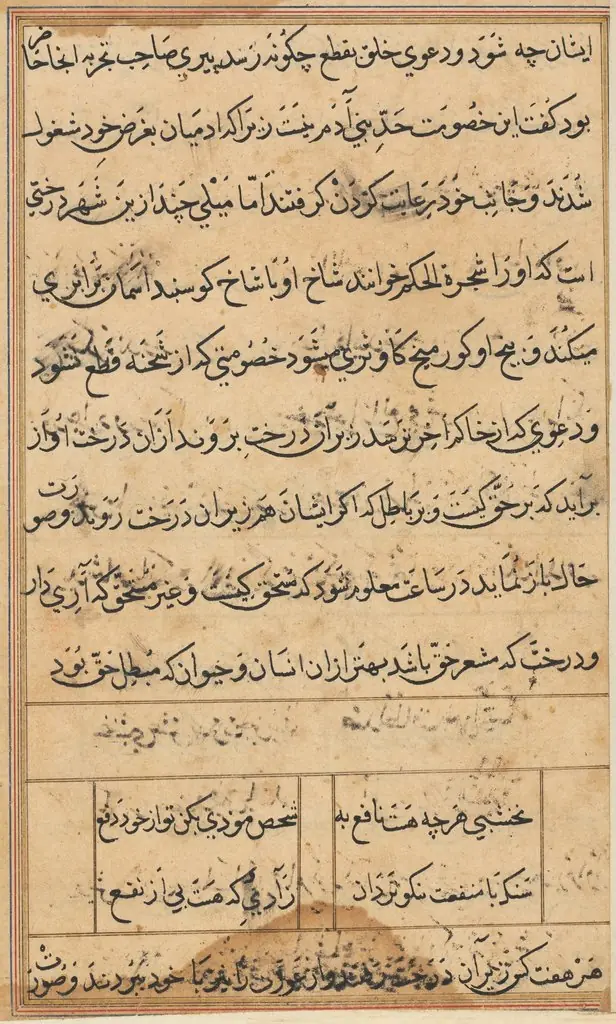 ایشان چه شود و دعوی خلق بقطع چکونه رسد پیری صاحب تجربه انجا حاضر
بود کفت این خصومت حد بنی آدم نیست زیرا که ادمیان بغرض خود مشغول
شدند و جانب خود رعایت کردن کرفتند اما میلی چند ازین شهر درختی
است که او را شجرة الحکم خوانند شاخ او با شاخ کوسبند اسمان برابری
میکند و بیخ او کور میخ کاو تری میشود خصومتی که از شحنه قطع نشود
و دعوی که از حاکم آخر نرسد زیر آن درخت بروند از آن درخت اواز
برآید که بر حق کیست و بر باطل که اکر ایشان هم زیر ان درخت روند و صورت
حال باز نماید در ساعت معلوم شود که مستحق کیست و غیر مستحق که آری دار
و درختی که مشعر حق باشد بهتر از ان انسان و حیوان که مبطل حق بود
نخشبی هرچه هست نافع به
شخص موذی بکن تو از خود دفع
سنک با منفعت نکوتر دان
ز آدمی که هست بی از نفع
هر هفت کس زیر آن درخت خود ببردند و صورت